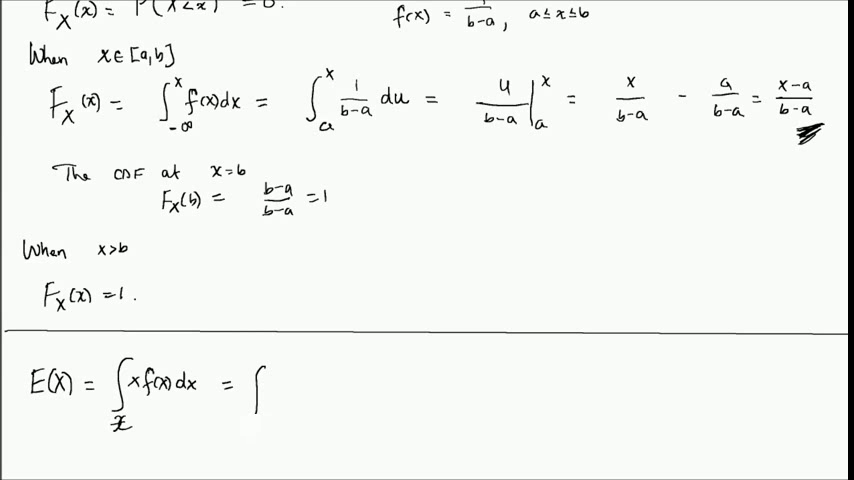 F_X(x) = P(X<x) = 0.
f(x) = 1/(b-a), a≤x≤b
When x∈[a,b]
F_X(x) = ∫_{-∞}^{x} f(x)dx = ∫_a^x 1/(b-a) du = u/(b-a) |_a^x = x/(b-a) - a/(b-a) = (x-a)/(b-a)
The CDF at x=b
F_X(b) = (b-a)/(b-a) = 1
When x>b
F_X(x) = 1.
E(X) = ∫_x x f(x) dx = ∫